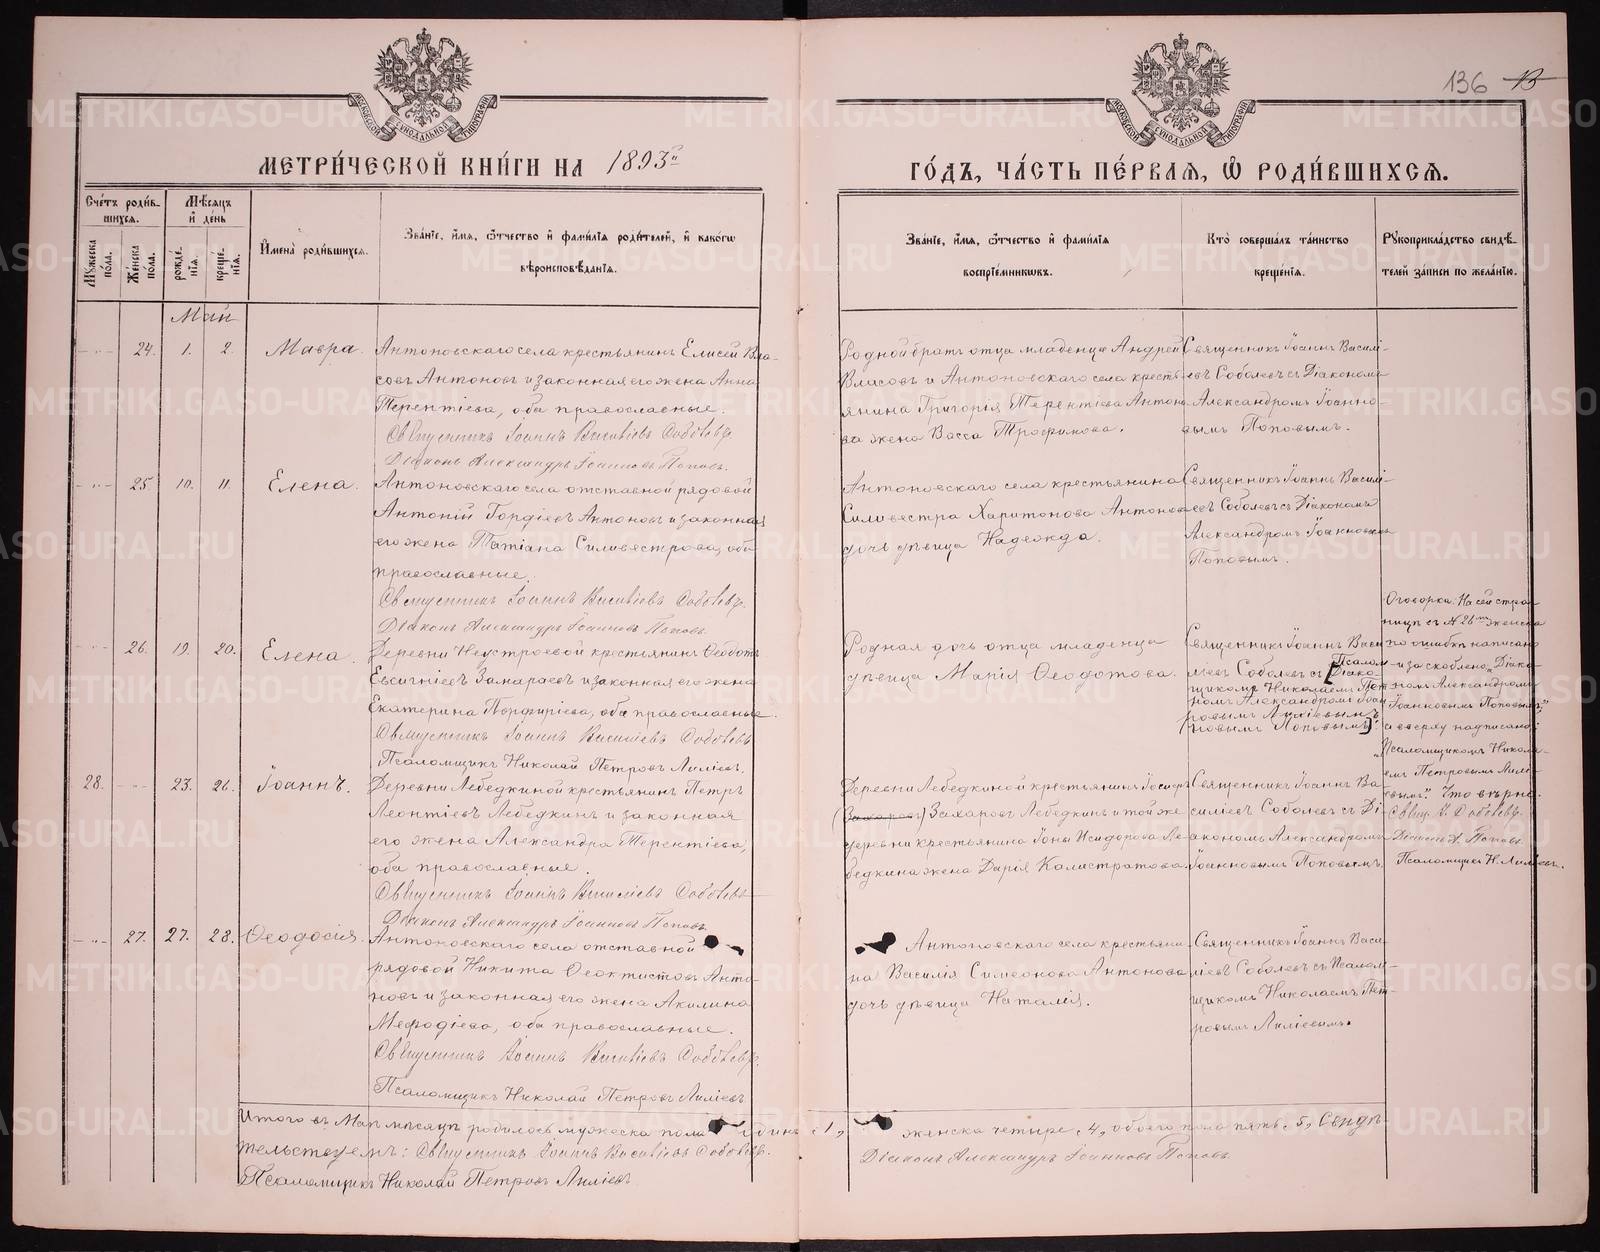 136 13
МОСКОВСКОЙ СѴНОДАЛЬНОЙ ТИПОГРАФІИ
МОСКОВСКОЙ СѴНОДАЛЬНОЙ ТИПОГРАФІИ
МЕТРИ́ЧЕСКОЙ КНИ́ГИ НА 1893й
ГО́ДЪ, ЧА́СТЬ ПЕ́РВАѦ, Ѡ҆ РОДИ́ВШИХСѦ.
Сче́тъ роди́в-
шихсѧ.
Мѣ́сѧцъ
и҆ де́нь
Мꙋ́жеска
пола.
Же́нска
пола.
рожде́-
нїѧ.
креще́-
нїѧ.
И҆мена̀ роди́вшихсѧ.
Зва́нїе, и҆́мѧ, ѻ҆́тчество и҆ фамѝлїѧ роди́телей, и҆ како́гѡ
вѣроисповѣ́данїѧ.
Зва́нїе, и҆́мѧ, ѻ҆́тчество и҆ фамѝлїѧ
воспрїе́мникѡвъ.
Кто̀ соверша́лъ та́инство
креще́нїѧ.
Рꙋкоприкла́дство свидѣ́-
телей за́писи по жела́нїю.
Май
- " - 24. 1. 2. Мавра.
Антоновскаго села крестьянинъ Елисей Вла-
совъ Антоновъ и законная его жена Анна
Терентіева, оба православные.
Священникъ Іоаннъ Василіевъ Соболевъ.
Діаконъ Александръ Іоанновъ Поповъ.
Родной братъ отца младенца Андрей
Власовъ и Антоновскаго села кресть-
янина Григорія Терентіева Антоно-
ва жена Васса Трофимова.
Священникъ Іоаннъ Васили-
евъ Соболевъ съ Діакономъ
Александромъ Іоанно-
вымъ Поповымъ.
- " - 25. 10. 11. Елена.
Антоновскаго села отставной рядовой
Антоній Гордіевъ Антоновъ и законная
его жена Татіана Силивестрова, оба
православные.
Священникъ Іоаннъ Василіевъ Соболевъ.
Діаконъ Александръ Іоанновъ Поповъ.
Антоновскаго села крестьянина
Силивестра Харитонова Антонова
дочь дѣвица Надежда.
Священникъ Іоаннъ Васили-
евъ Соболевъ съ Діакономъ
Александромъ Іоанновымъ
Поповымъ.
- " - 26. 19. 20. Елена.
Деревни Неустроевой крестьянинъ Ѳеодотъ
Евсигніевъ Замараевъ и законная его жена
Екатерина Порфиріева, оба православные.
Священникъ Іоаннъ Василіевъ Соболевъ.
Псаломщикъ Николай Петровъ Лиліевъ.
Родная дочь отца младенца
дѣвица Марія Ѳеодотова.
Священникъ Іоаннъ Васи-
ліевъ Соболевъ съ Псалом-
Діако-
щикомъ Николаемъ Пет-
номъ Александромъ Іоан-
ровымъ Лиліевымъ
новымъ Поповымъ.
Оговорка: На сей стра-
ницѣ въ № 26мъ женска
по ошибкѣ написано
и заскоблено „Діако-
номъ Александромъ
Іоанновымъ Поповымъ",
а вверху надписано:
„Псаломщикомъ Никола-
емъ Петровымъ Лилі-
евымъ". Что вѣрно.
Свящ. І. Соболевъ.
Діаконъ А. Поповъ.
Псаломщикъ Н. Лиліевъ.
28. - - - 23. 26. Іоаннъ.
Деревни Лебедкиной крестьянинъ Петръ
Леонтіевъ Лебедкинъ и законная
его жена Александра Терентіева,
оба православные.
Священникъ Іоаннъ Василіевъ Соболевъ
Діаконъ Александръ Іоанновъ Поповъ.
Деревни Лебедкиной крестьянинъ
(Захаров) Захаровъ Лебедкинъ и той же
деревни крестьянина Іоны Исидорова Ле-
бедкина жена Дарія Калистратова.
Священникъ Іоаннъ Ва-
силіевъ Соболевъ съ Ді-
акономъ Александромъ
Іоанновымъ Поповымъ.
- " - 27. 27. 28. Ѳеодосія.
Антоновскаго села отставной
рядовой Никита Ѳеоктистовъ Анто-
новъ и законная его жена Акилина
Меѳодіева, оба православные.
Священникъ Іоаннъ Василіевъ Соболевъ.
Псаломщикъ Николай Петровъ Лиліевъ
Антоновскаго села крестьяни-
на Василія Симеонова Антонова
дочь дѣвица Наталія.
Священникъ Іоаннъ Васи-
ліевъ Соболевъ съ Псалом-
щикомъ Николаемъ Пет-
ровымъ Лиліевымъ.
Итого въ Маѣ мѣсяцѣ родилось мужеска пола одинъ „1„
женска четыре „4„ обоего пола пять „5„ Свидѣ-
тельствуемъ: Священникъ Іоаннъ Василіевъ Соболевъ.
Діаконъ Александръ Іоанновъ Поповъ
Псаломщикъ Николай Петровъ Лиліевъ
METRIKI.GASO-URAL.RU